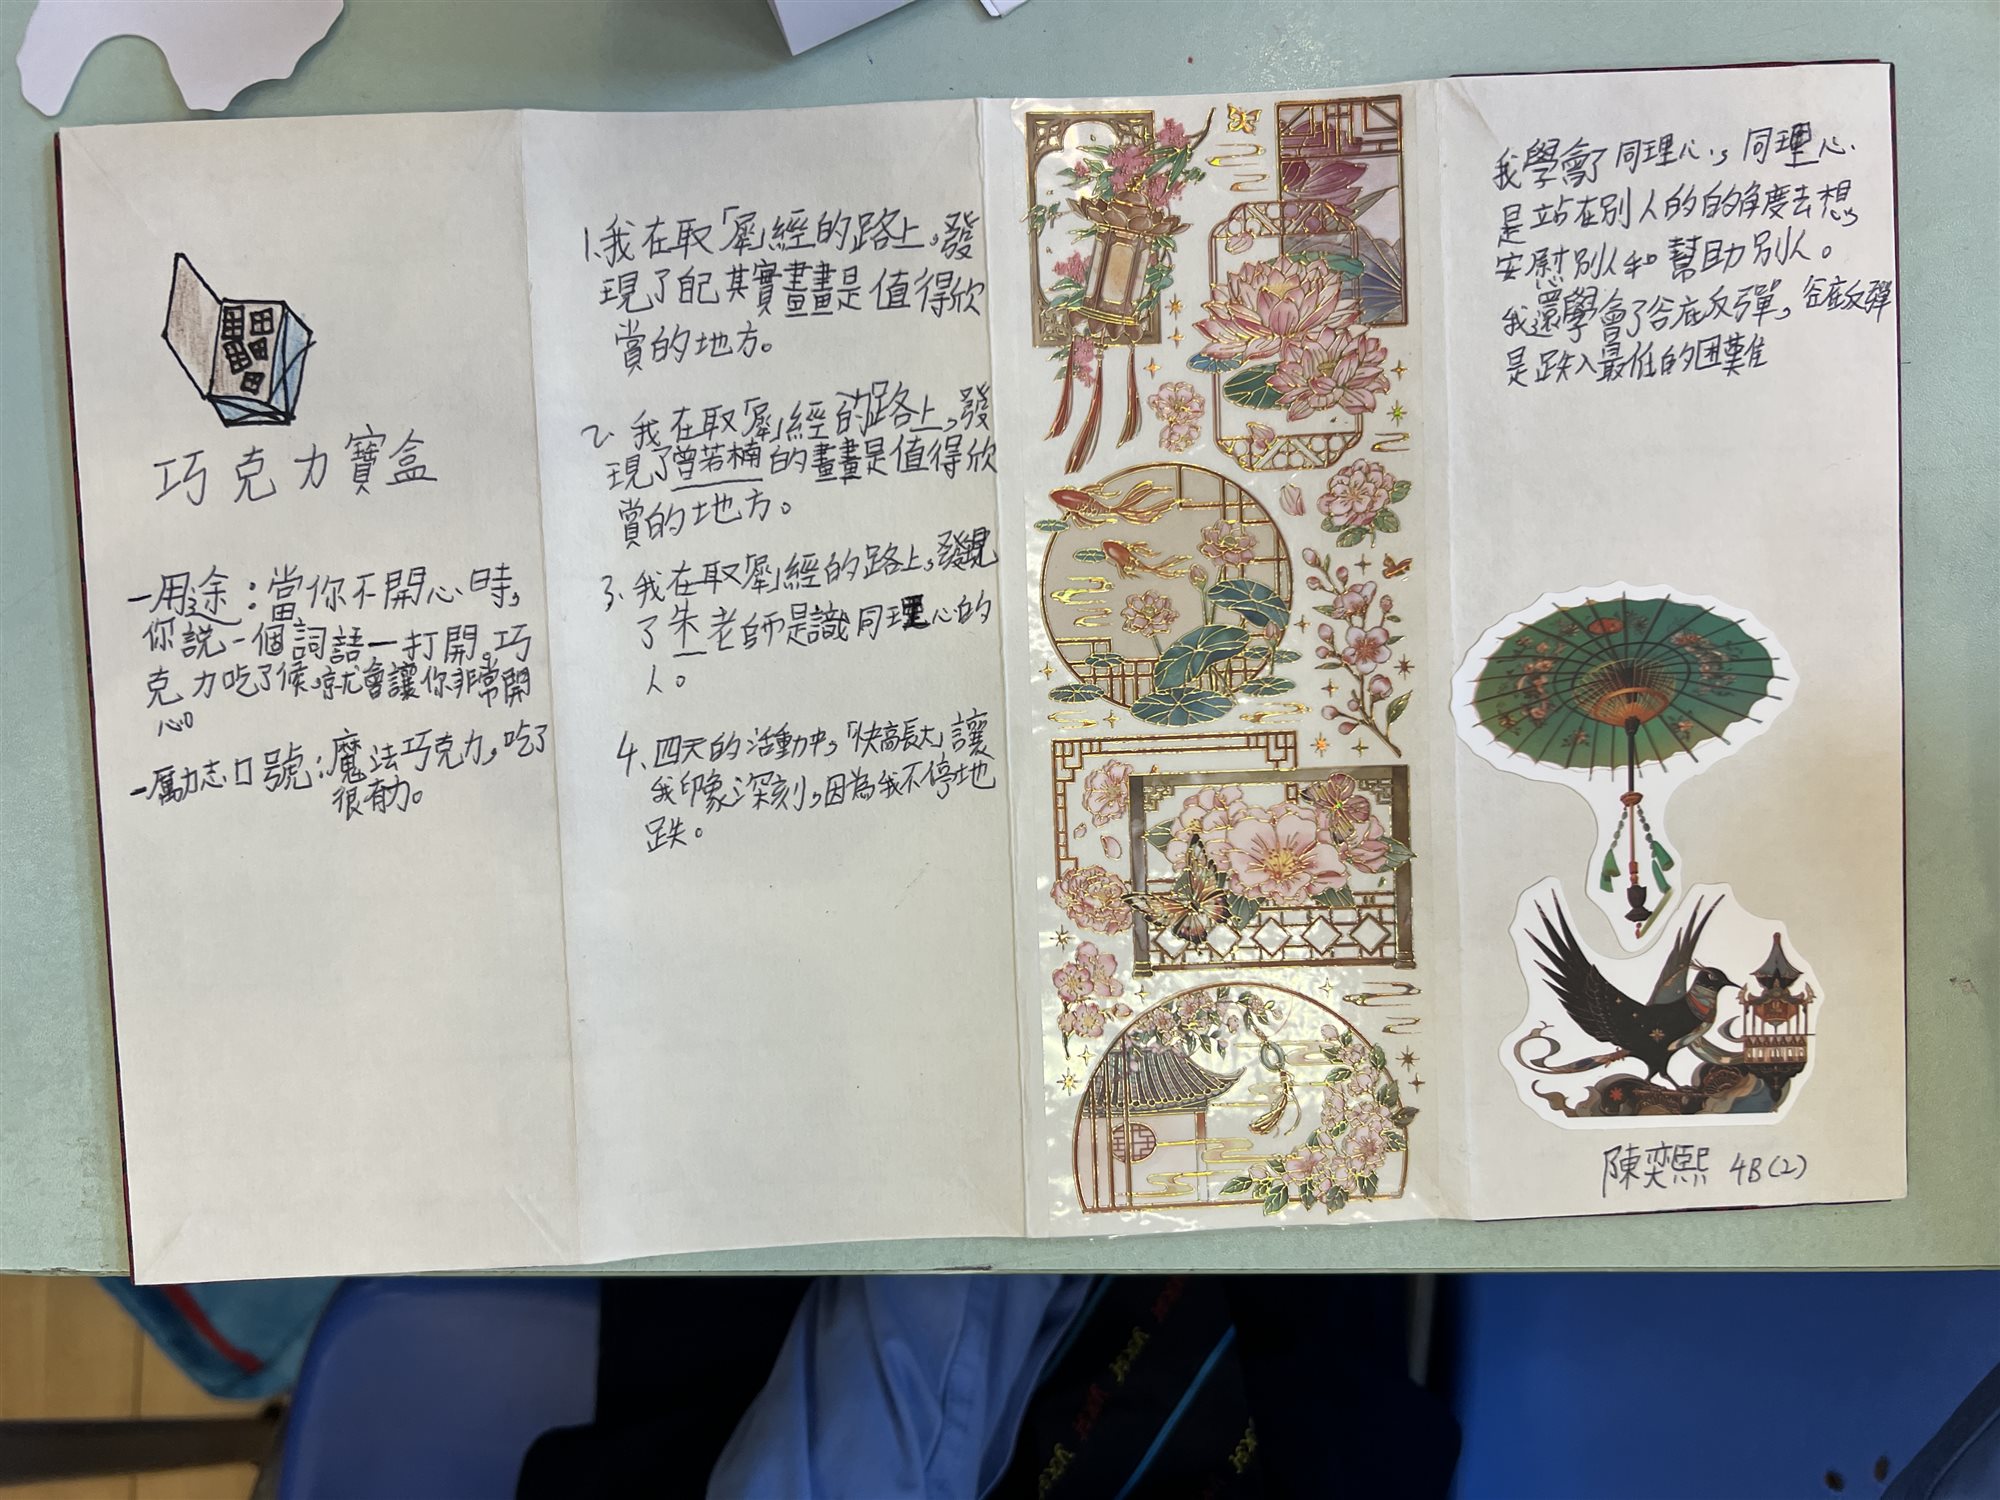 巧克力寶盒
－用途：當你不開心時，
你說一個詞語一打開。巧
克力吃了候，就會讓你非常開
心。
－勵志口號：魔法巧克力，吃了
很有力。
1、我在取「犀」經的路上，發
現了自己其實畫畫是值得欣
賞的地方。
2、我在取「犀」經的路上，發
現了曾若楠的畫畫是值得欣
賞的地方。
3、我在取「犀」經的路上，發現
了朱老師是識同理心的
人。
4、四天的活動中，「快高長大」讓
我印象深刻，因為我不停地
跌。
我學會了同理心，同理心
是站在別人的的角度去想，
安慰別人和幫助別人。
我還學會了谷底反彈，谷底反彈
是跌入最低的困難
陳奕熙 4B(2)